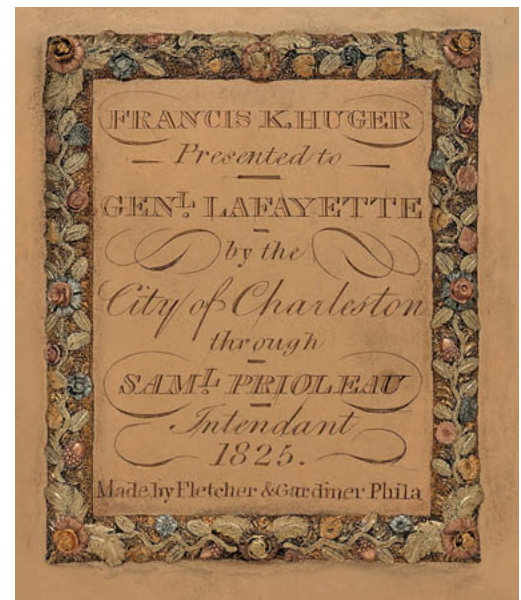 FRANCIS K. HUGER
Presented to
GENL. LAFAYETTE
by the
City of Charleston
through
SAML. PRIOLEAU
Intendant
1825.
Made by Fletcher & Gardiner Phila